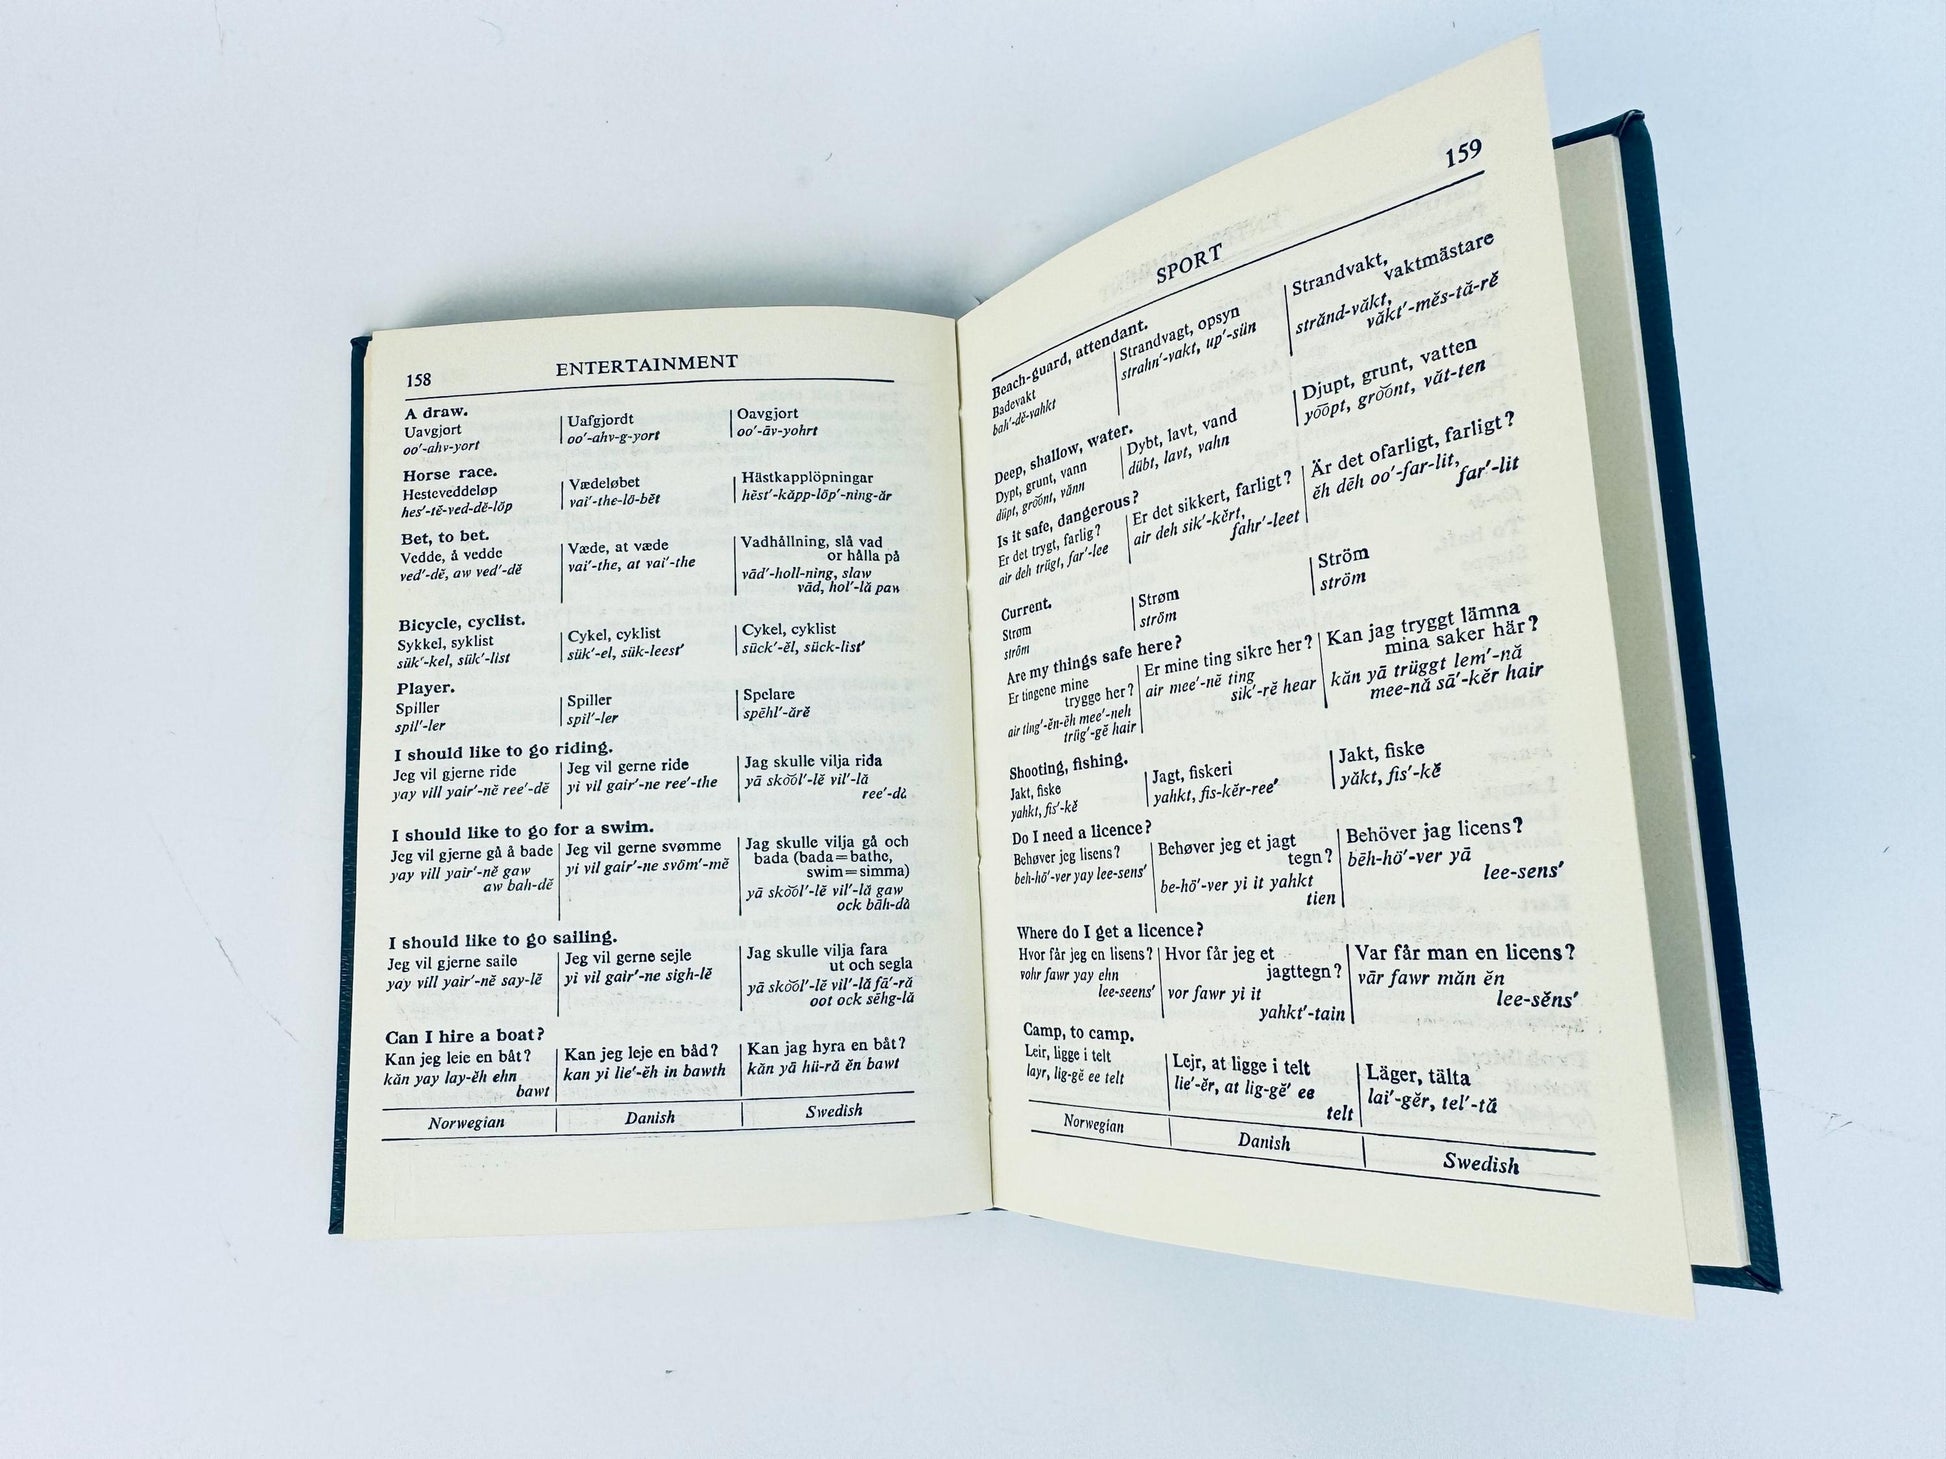 158
ENTERTAINMENT
A draw.
Uavgjort
oo′-ahv-yort
Uafgjordt
oo′-ahv-g-yort
Oavgjort
oo′-āv-yohrt
Horse race.
Hesteveddeløp
hes′-tĕ-ved-dĕ-löp
Vædeløbet
vai′-the-lō-bĕt
Hästkapplöpningar
hĕst′-kăpp-löp′-ning-ăr
Bet, to bet.
Vedde, å vedde
ved′-dĕ, aw ved′-dĕ
Væde, at væde
vai′-the, at vai′-the
Vadhållning, slå vad
or hålla på
vād′-holl-ning, slaw
vād, hol′-lă paw
Bicycle, cyclist.
Sykkel, syklist
sük′-kel, sük′-list
Cykel, cyklist
sük′-el, sük-leest′
Cykel, cyklist
sück′-ĕl, sück-list′
Player.
Spiller
spil′-ler
Spiller
spil′-ler
Spelare
spēhl′-ărĕ
I should like to go riding.
Jeg vil gjerne ride
yay vill yair′-nĕ ree′-dĕ
Jeg vil gerne ride
yi vil gair′-ne ree′-the
Jag skulle vilja rida
yā skŏŏl′-lĕ vil′-lă
ree′-dă
I should like to go for a swim.
Jeg vil gjerne gå å bade
yay vill yair′-nĕ gaw
aw bah-dĕ
Jeg vil gerne svømme
yi vil gair′-ne svöm′-mĕ
Jag skulle vilja gå och
bada (bada=bathe,
swim=simma)
yā skŏŏl′-lĕ vil′-lă gaw
ock bāh-dă
I should like to go sailing.
Jeg vil gjerne saile
yay vill yair′-nĕ say-lĕ
Jeg vil gerne sejle
yi vil gair′-ne sigh-lĕ
Jag skulle vilja fara
ut och segla
yā skŏŏl′-lĕ vil′-lă fā′-ră
oot ock sēhg-lă
Can I hire a boat?
Kan jeg leie en båt?
kăn yay lay-ĕh ehn
bawt
Kan jeg leje en båd?
kan yi lie′-ĕh in bawth
Kan jag hyra en båt?
kăn yā hü-ră ĕn bawt
Norwegian
Danish
Swedish
159
SPORT
Beach-guard, attendant.
Badevakt
bah′-dĕ-vahkt
Strandvagt, opsyn
strahn′-vakt, up′-sün
Strandvakt,
vaktmästare
strănd-văkt,
văkt′-mĕs-tă-rĕ
Deep, shallow, water.
Dypt, grunt, vann
düpt, grŏŏnt, vănn
Dybt, lavt, vand
dübt, lavt, vahn
Djupt, grunt, vatten
yōōpt, grŏŏnt, văt-ten
Is it safe, dangerous?
Er det trygt, farlig?
air deh trügt, far′-lee
Er det sikkert, farligt?
air deh sik′-kĕrt,
fahr′-leet
Är det ofarligt, farligt?
ĕh dĕh oo′-far-lit,
far′-lit
Current.
Strøm
ström
Strøm
ström
Ström
ström
Are my things safe here?
Er tingene mine
trygge her?
air ting′-ĕn-ĕh mee′-neh
trüg′-gĕ hair
Er mine ting sikre her?
air mee′-nĕ ting
sik′-rĕ hear
Kan jag tryggt lämna
mina saker här?
kăn yā trüggt lem′-nă
mee-nă sā′-kĕr hair
Shooting, fishing.
Jakt, fiske
yahkt, fis′-kĕ
Jagt, fiskeri
yahkt, fis-kĕr-ree′
Jakt, fiske
yăkt, fis′-kĕ
Do I need a licence?
Behøver jeg lisens?
beh-hö′-ver yay lee-sens′
Behøver jeg et jagt
tegn?
be-hō′-ver yi it yahkt
tien
Behöver jag licens?
bĕh-hö′-ver yā
lee-sens′
Where do I get a licence?
Hvor får jeg en lisens?
vohr fawr yay ehn
lee-seens′
Hvor får jeg et
jagttegn?
vor fawr yi it
yahkt′-tain
Var får man en licens?
vār fawr măn ĕn
lee-sĕns′
Camp, to camp.
Leir, ligge i telt
layr, lig-gĕ ee telt
Lejr, at ligge i telt
lie′-ĕr, at lig-gĕ′ ee
telt
Läger, tälta
lai′-gĕr, tel′-tă
Norwegian
Danish
Swedish